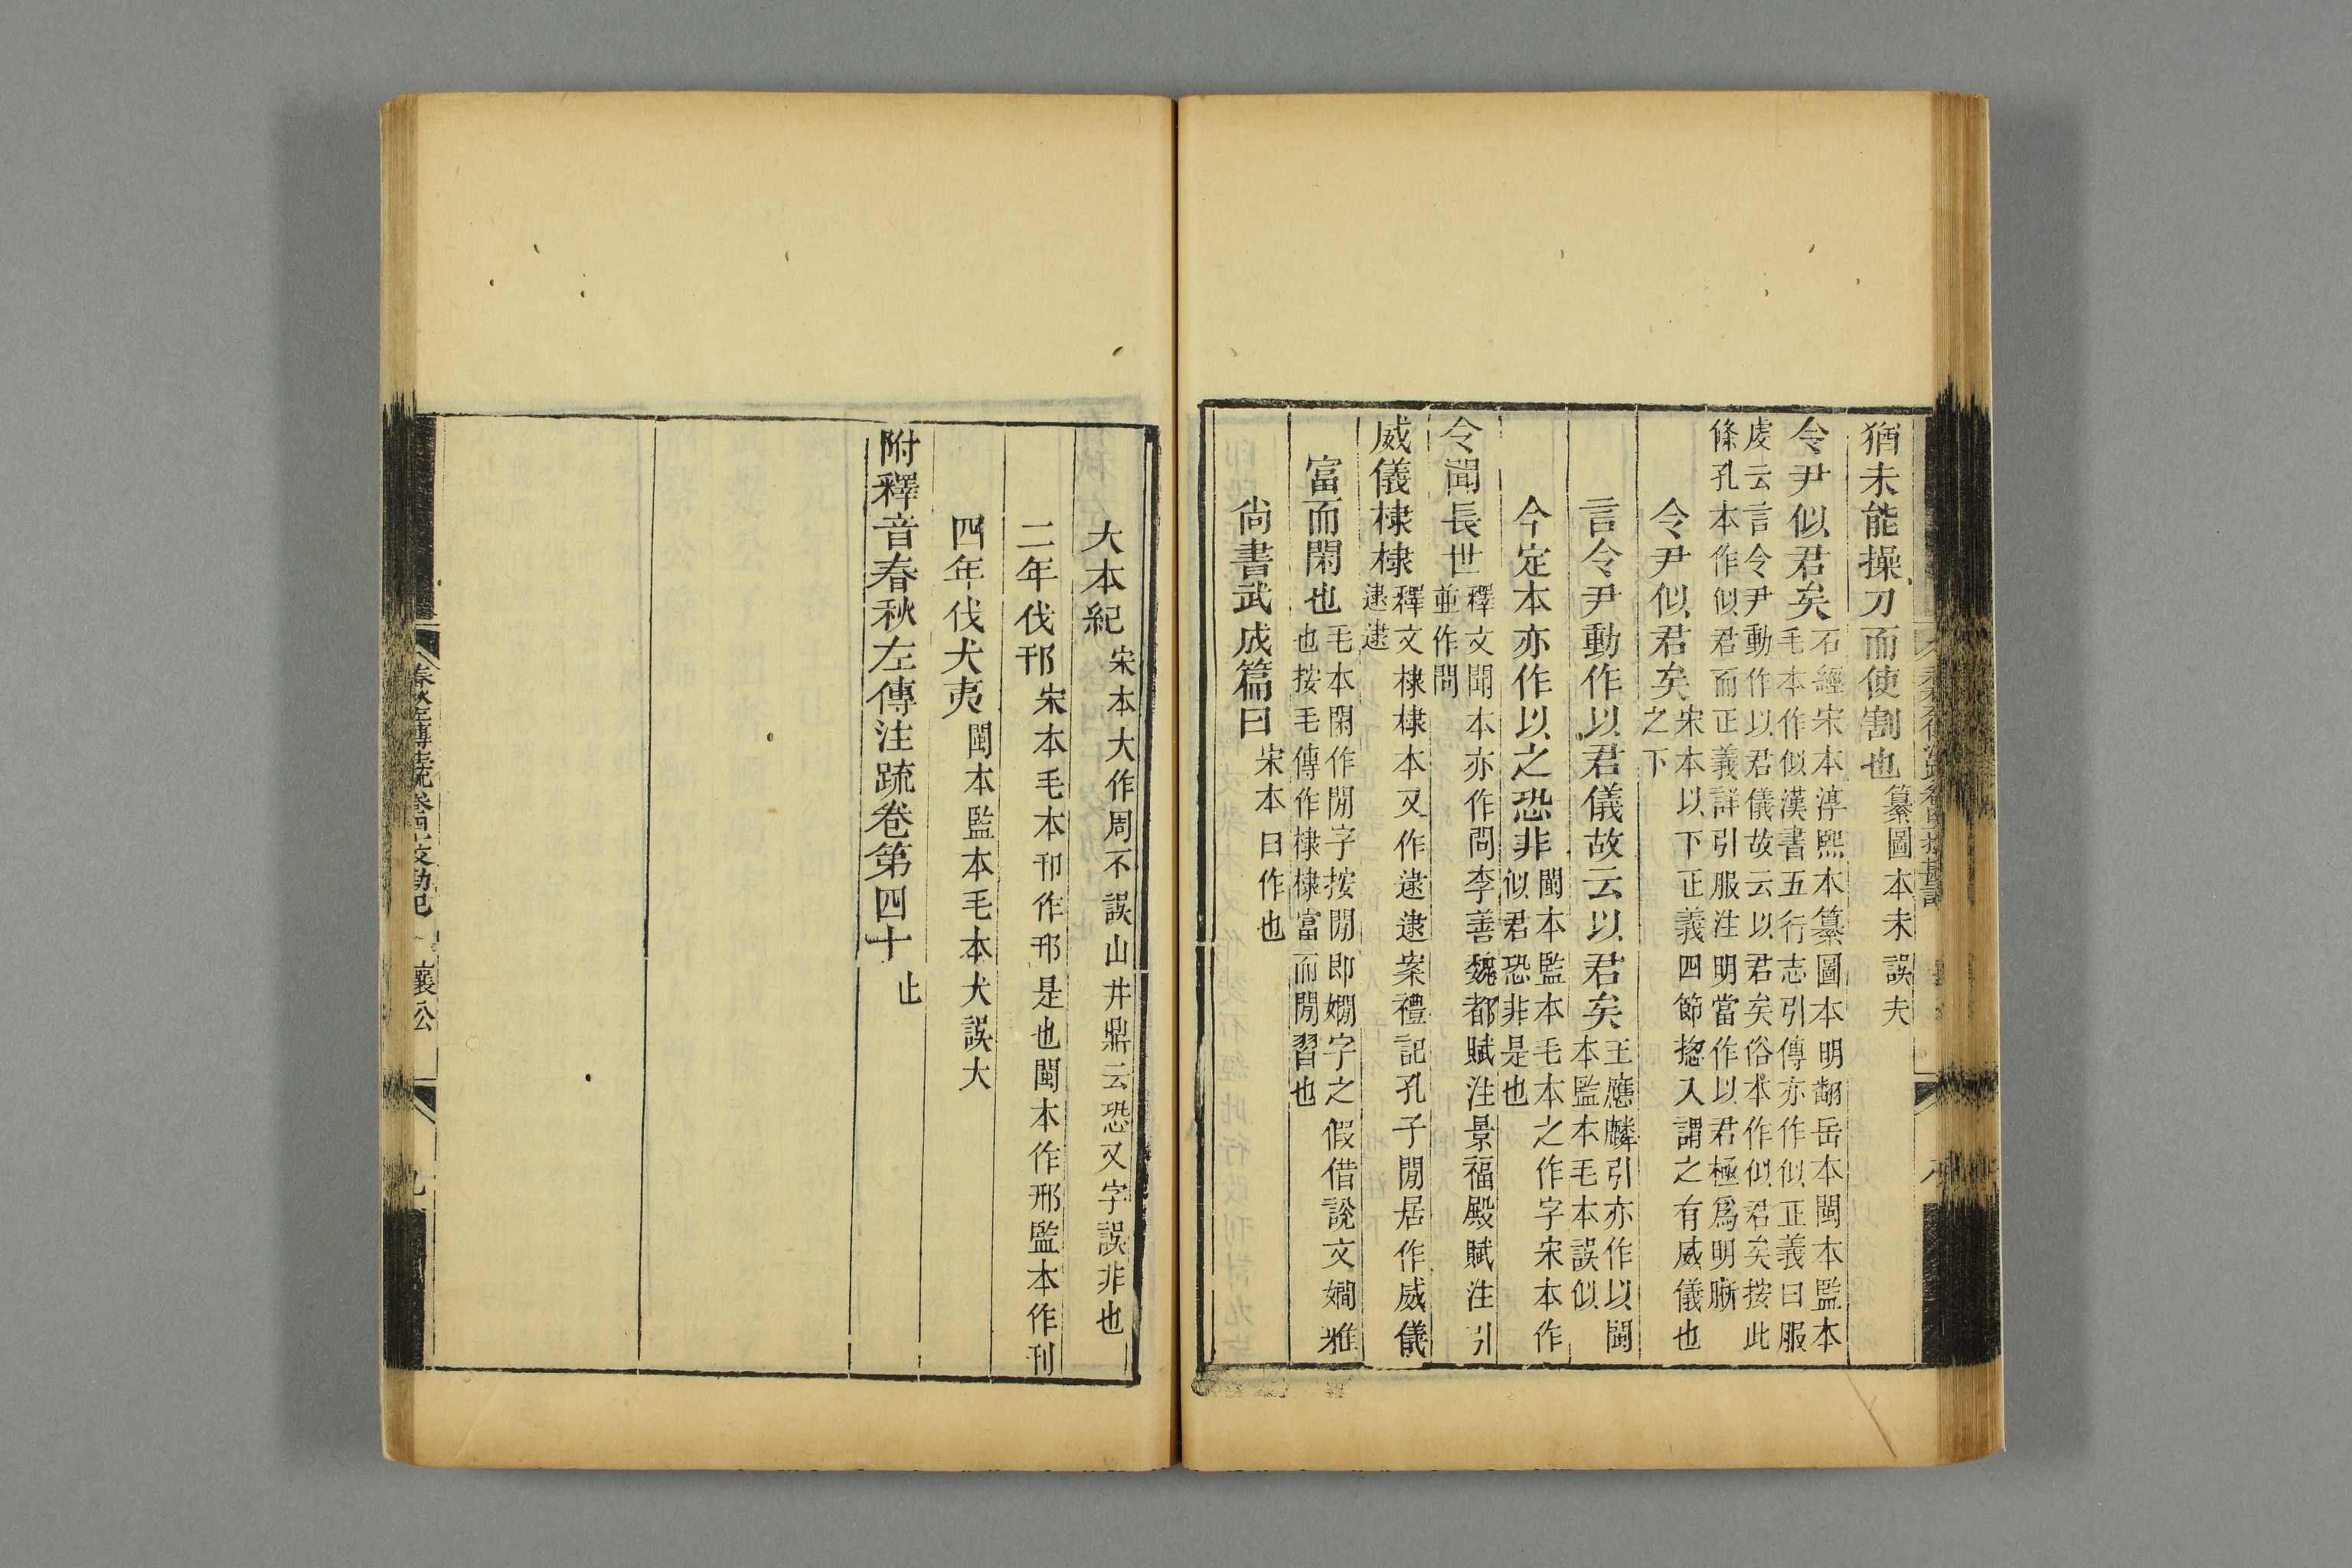 猶未能操刀而使割也纂圖本未誤夫
令尹似君矣石經宋本淳熙本纂圖本明翻岳本閩本監本
毛本作似漢書五行志引傳亦作似正義曰服
虔云言令尹動作以君儀故云以君矣俗本作似君矣按此
條孔本作似君而正義詳引服注明當作以君極爲明晰
令尹似君矣宋本以下正義四節揔入謂之有威儀也
之下
言令尹動作以君儀故云以君矣王應麟引亦作以閩
本監本毛本誤似
今定本亦作以之恐非閩本監本毛本之作字宋本作
似君恐非是也
令聞長世釋文聞本亦作問李善魏都賦注景福殿賦注引
並作問
威儀棣棣釋文棣棣本又作逮逮案禮記孔子閒居作威儀
逮逮
富而閑也毛本閑作閒字按閒即嫺字之假借說文嫺雅
也按毛傳作棣棣富而閒習也
尙書武成篇曰宋本曰作也
大本紀宋本大作周不誤山井鼎云恐又字誤非也
二年伐邘宋本毛本邘作邢是也閩本作邢監本作刊
四年伐犬夷閩本監本毛本犬誤大
附釋音春秋左傳注疏卷第四十止
春秋左傳注疏卷四十校勘記 襄公 九